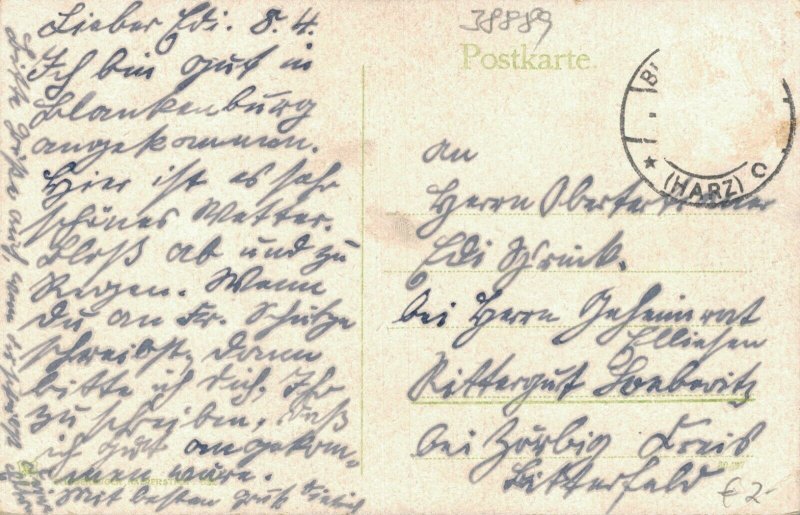 Lieber Edi. 8. 4.
Ich bin gut in
Blankenburg
angekommen.
Hier ist es sehr
schönes Wetter.
Bloß ab und zu
Regen. Wenn
Du an Fr. Schulze
schreibst, dann
bitte ich dich, Ihr
zu schreiben, daß
ich gut angekom-
men wäre.
Mit besten Gruß Dietrich
38889
Postkarte
(HARZ) C
An
Herrn Obertertianer
Edi
bei Herrn Geheimrat
Elliesen
Rittergut Loeberitz
bei Zörbig Kreis
Bitterfeld
€ 2-